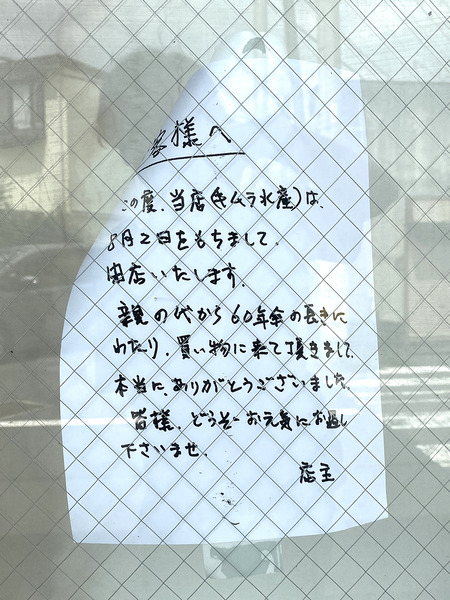 客様へ
この度、当店(キムラ水産)は、
8月2日をもちまして、
閉店いたします。
親の代から60年余の長きに
わたり、買い物に来て頂きまして
本当に、ありがとうございました。
皆様、どうぞお元気にお過し
下さいませ。
店主